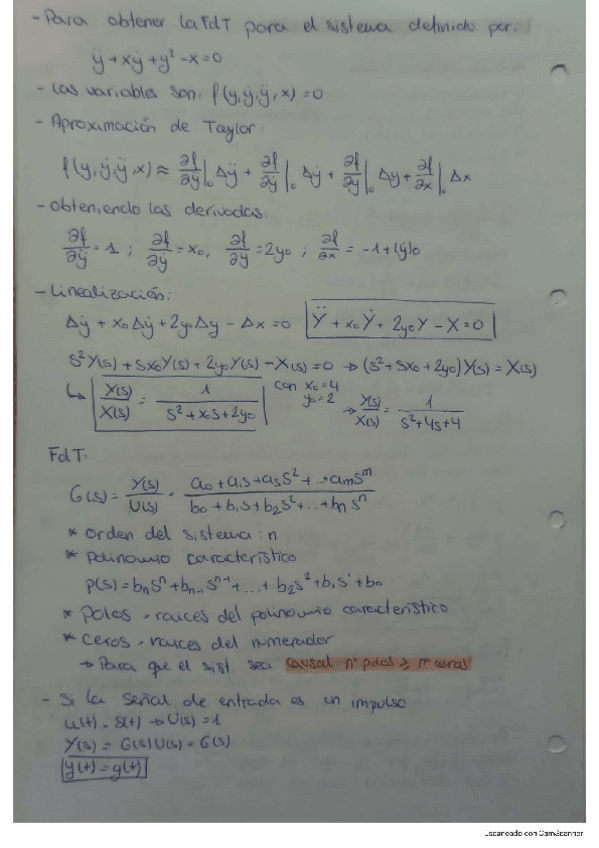 - Para obtener la FdT para el sistema definido por:
ÿ + xẏ + y² - x = 0
- Las variables son: f(y, ẏ, ÿ, x) = 0
- Aproximación de Taylor:
f(y, ẏ, ÿ, x) ≈ ∂f/∂ÿ|₀ Δÿ + ∂f/∂ẏ|₀ Δẏ + ∂f/∂y|₀ Δy + ∂f/∂x|₀ Δx
- Obteniendo las derivadas:
∂f/∂ÿ = 1 ; ∂f/∂ẏ = x₀, ∂f/∂y = 2y₀ ; ∂f/∂x = -1 + (ẏ)₀
- Linealización:
Δÿ + x₀Δẏ + 2y₀Δy - Δx = 0 Ÿ + x₀Ẏ + 2y₀Y - X = 0
s²Y(s) + sx₀Y(s) + 2y₀Y(s) - X(s) = 0 → (s² + sx₀ + 2y₀)Y(s) = X(s)
↳ Y(s)/X(s) = 1/(s² + x₀s + 2y₀) con x₀ = 4 y₀ = 2 → Y(s)/X(s) = 1/(s² + 4s + 4)
FdT:
G(s) = Y(s)/U(s) = (a₀ + a₁s + a₅s² + ... + aₘsᵐ)/(b₀ + b₁s + b₂s² + ... + bₙsⁿ)
* Orden del sistema: n
* Polinomio característico
P(s) = bₙsⁿ + bₙ₋₁sⁿ⁻¹ + ... + b₂s² + b₁s¹ + b₀
* Polos - raíces del polinomio característico
* Ceros - raíces del numerador
→ Para que el sist. sea causal nº polos ≥ nº ceros
- Si la señal de entrada es un impulso
u(t) = δ(t) → U(s) = 1
Y(s) = G(s)U(s) = G(s)
y(t) = g(t)
Escaneado con CamScanner